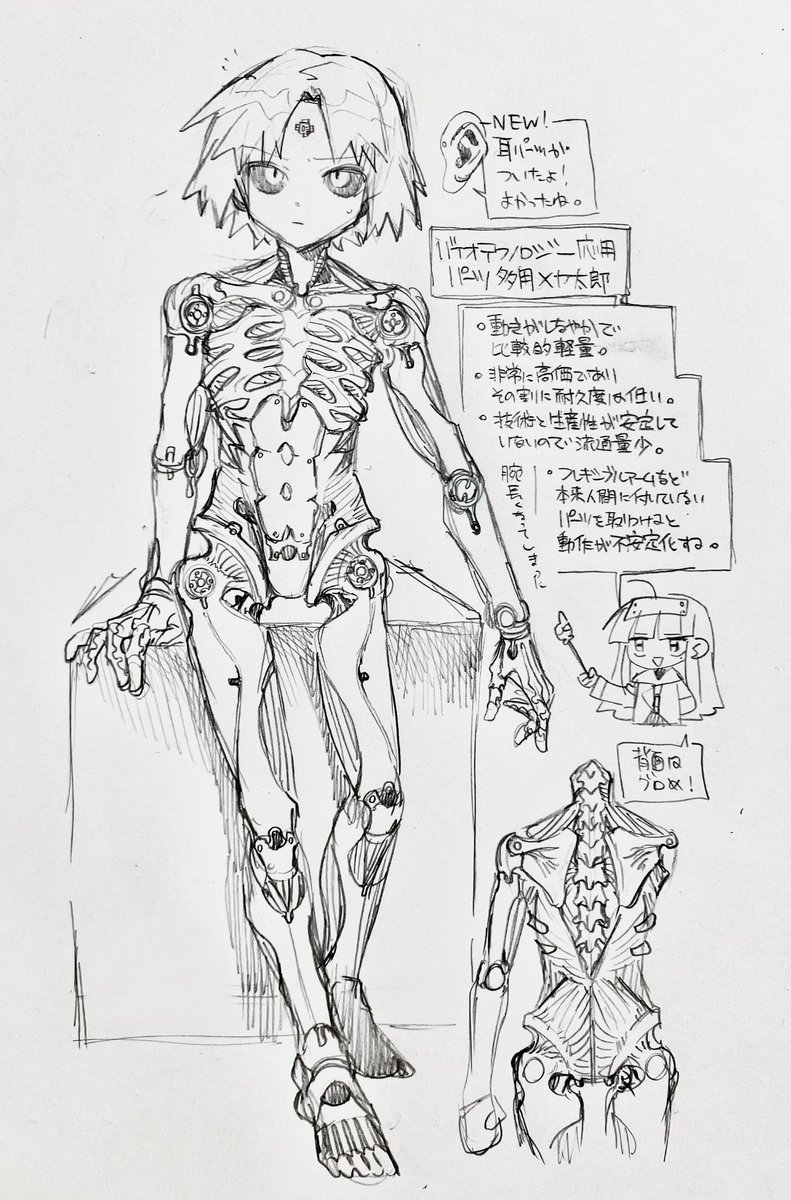 NEW!
耳パーツが
ついたよ!
よかったね。
バイオテクノロジー応用
パーツ多用メカ太郎
・動きがしなやかで
比較的軽量。
・非常に高価であり
その割に耐久度は低い。
・技術と生産性が安定して
いないので流通量少。
・フレキシブルアームなど
本来人間に付いていない
パーツを取り付けると
動作が不安定化する。
腕長くなってしまった
背面は
グロめ!